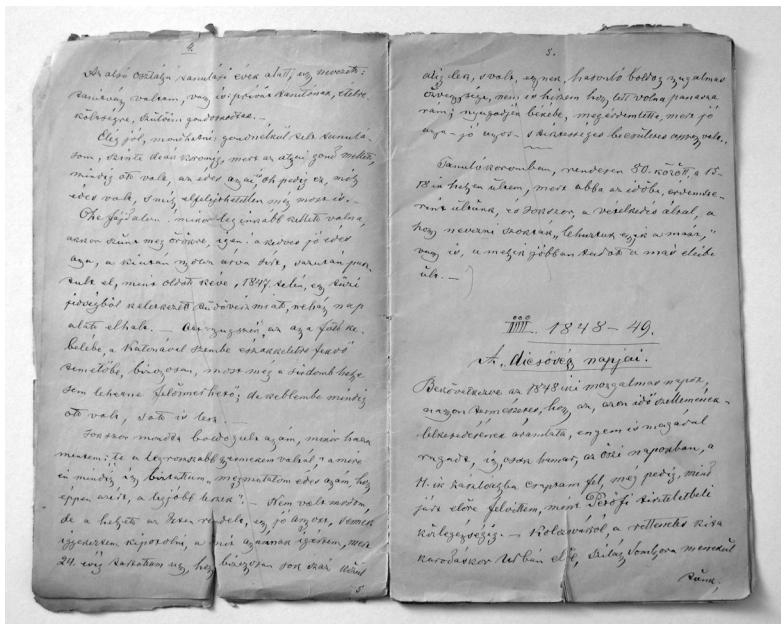 4.
Az alsó osztályú tanulási évek alatt, úgy nevezett:
tanítvány voltam, vagy is: privát tanítónak, élelme
költségre, szülőim gondoskodtak. —
Elég jól, mondhatni: gondnélkül telt tanulá-
som, szinte deák koromig, mert az atyai gond mellett,
mindig ott volt, az édes anyai, oh pedig ez, mily
édes volt, s mily elfelejthetetlen még most is. —
Óhe fájdalom! mikor leg inkább kellett volna,
akkor szünt meg örökre, igen! a kedves jó édes
anya, a ki után nyolcz árva sírt, ezután pusz-
tult el, mint oldott kéve, 1847. telén, egy
hidegből keletkezett tüdővész miatt, néhány nap
alatt elhalt. — az anya föld ke-
belébe, a Katonával szembe északkeletre fekvő
temetőbe, bizonyosan, most még a sírdomb helye
sem lehetne fölösmerhető; de keblembe mindig
ott volt, s ott is lesz. —
Sokszor mondta boldogult anyám, mikor haza
mentem: te a legrosszabb gyermekem voltál! a mire
én mindig így biztattam "megmutatom édes anyám, hogy
éppen azért, a legjobb leszek". — Nem volt módom,
de a helyett az Isten rendelt, egy jó anyóst, s ennek
igyekeztem kipótolni, a mit anyámnak igértem, mert
24. évig tartottam úgy, hogy bizonyosan sok száz közül
5.
5.
alig lesz, s volt, egynek, hasonló boldog nyugalmas
özvegysége, nem is hiszem hogy lett volna panasza
rám; nyugodjon békébe, megérdemlette, mert jó
anya — jó anyós — s tisztességes becsületes asszony volt. —
Tanuló koromban, rendesen 50. között, a 15-
18ik helyen ültem, mert abba az időbe, érdemsze-
rint ültünk, és sokszor, a vetélkedés által, a
hogy nevezni szokták "lehuztuk egyik a mást,"
vagy is, a melyik jobban tudott a más elébe
ült. —
IIII. 1848—49.
A. dicsőség napjai.
Bekövetkezve az 1848iki mozgalmas napok,
nagyon természetes, hogy az, azon idő szellemének —
lelkesedésének áradata, engem is magával
ragadt, így csak hamar, az őszi napokban, a
11.ik zászlóaljba csaptam fel, még pedig, mind
járt előre felvittem, mint Petőfi tiszteletbeli
közlegénységig. — Kolozsvárból, a rettenetes kita-
karodáskor Urbán elöl, Szilágy Somlyora menekül
tünk,